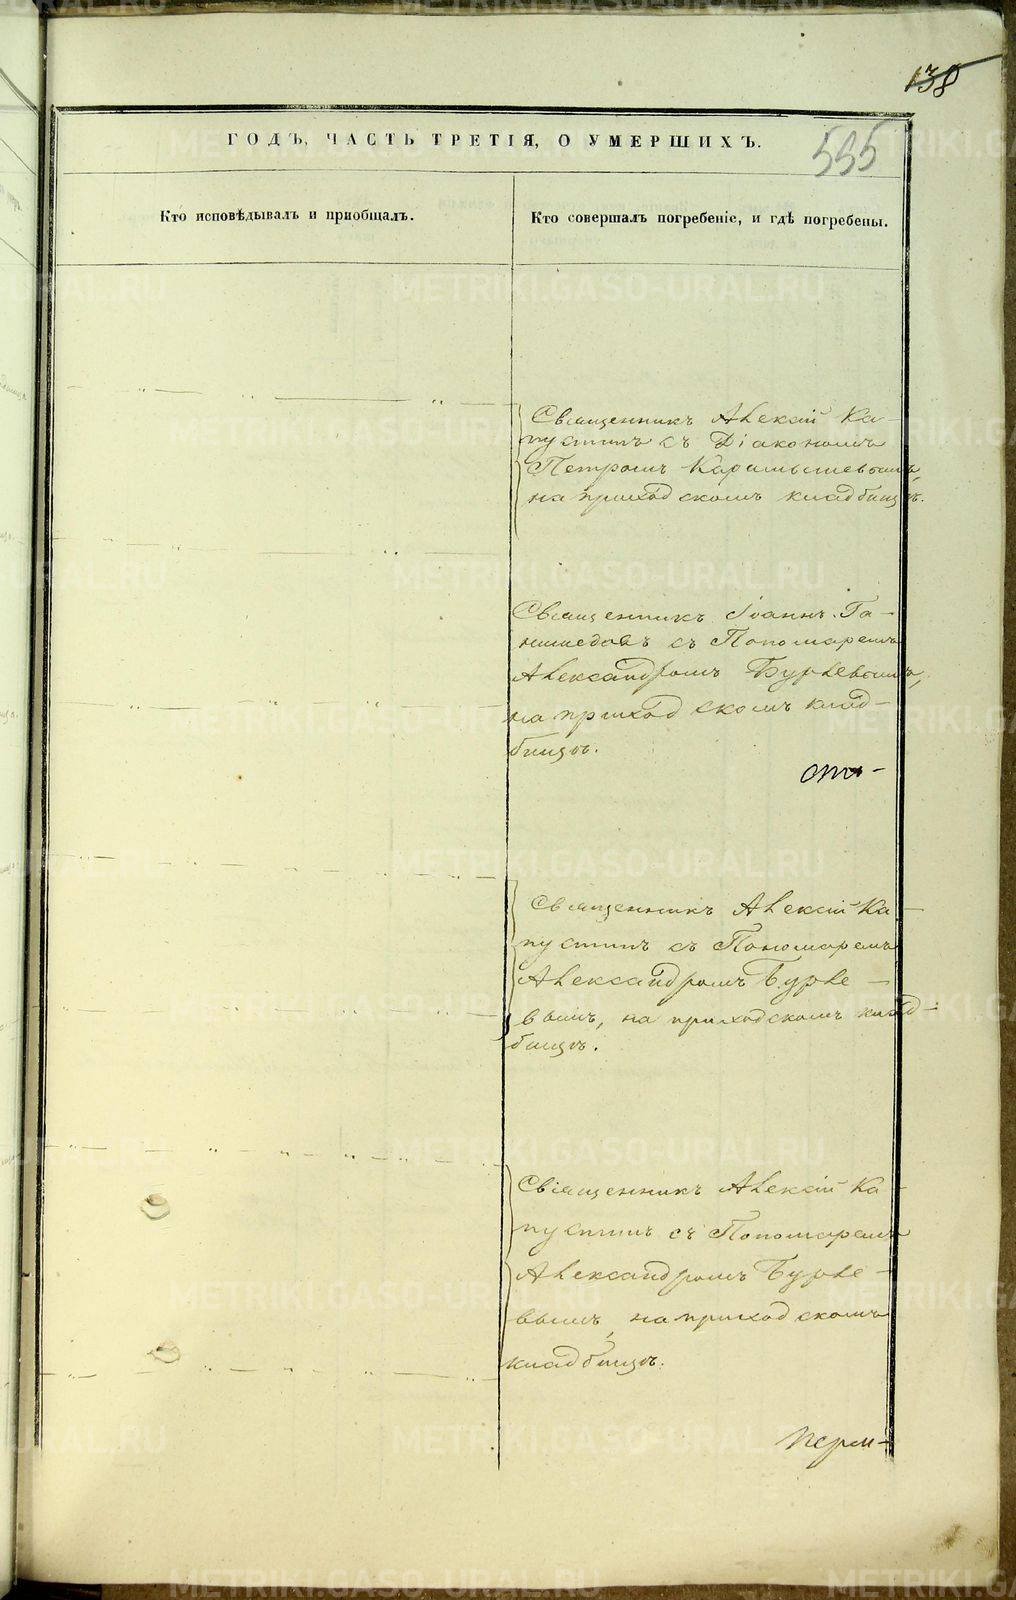 138
555
ГОДЪ, ЧАСТЬ ТРЕТІЯ, О УМЕРШИХЪ.
Кто исповѣдывалъ и пріобщалъ.
Кто совершалъ погребеніе, и гдѣ погребены.
Священникъ Алексій Ка-
пустинъ съ Діакономъ
Петромъ Карамышевымъ,
на приходскомъ кладбищѣ.
Священникъ Іоаннъ Га-
нимедовъ съ Пономаремъ
Александромъ Бурлевымъ,
на приходскомъ клад-
бищѣ.
Священникъ Алексій Ка-
пустинъ съ Пономаремъ
Александромъ Бурле-
вымъ, на приходскомъ клад-
бищѣ.
Священникъ Алексій Ка-
пустинъ съ Пономаремъ
Александромъ Бурле-
вымъ, на приходскомъ
кладбищѣ.
METRIKI.GASO-URAL.RU